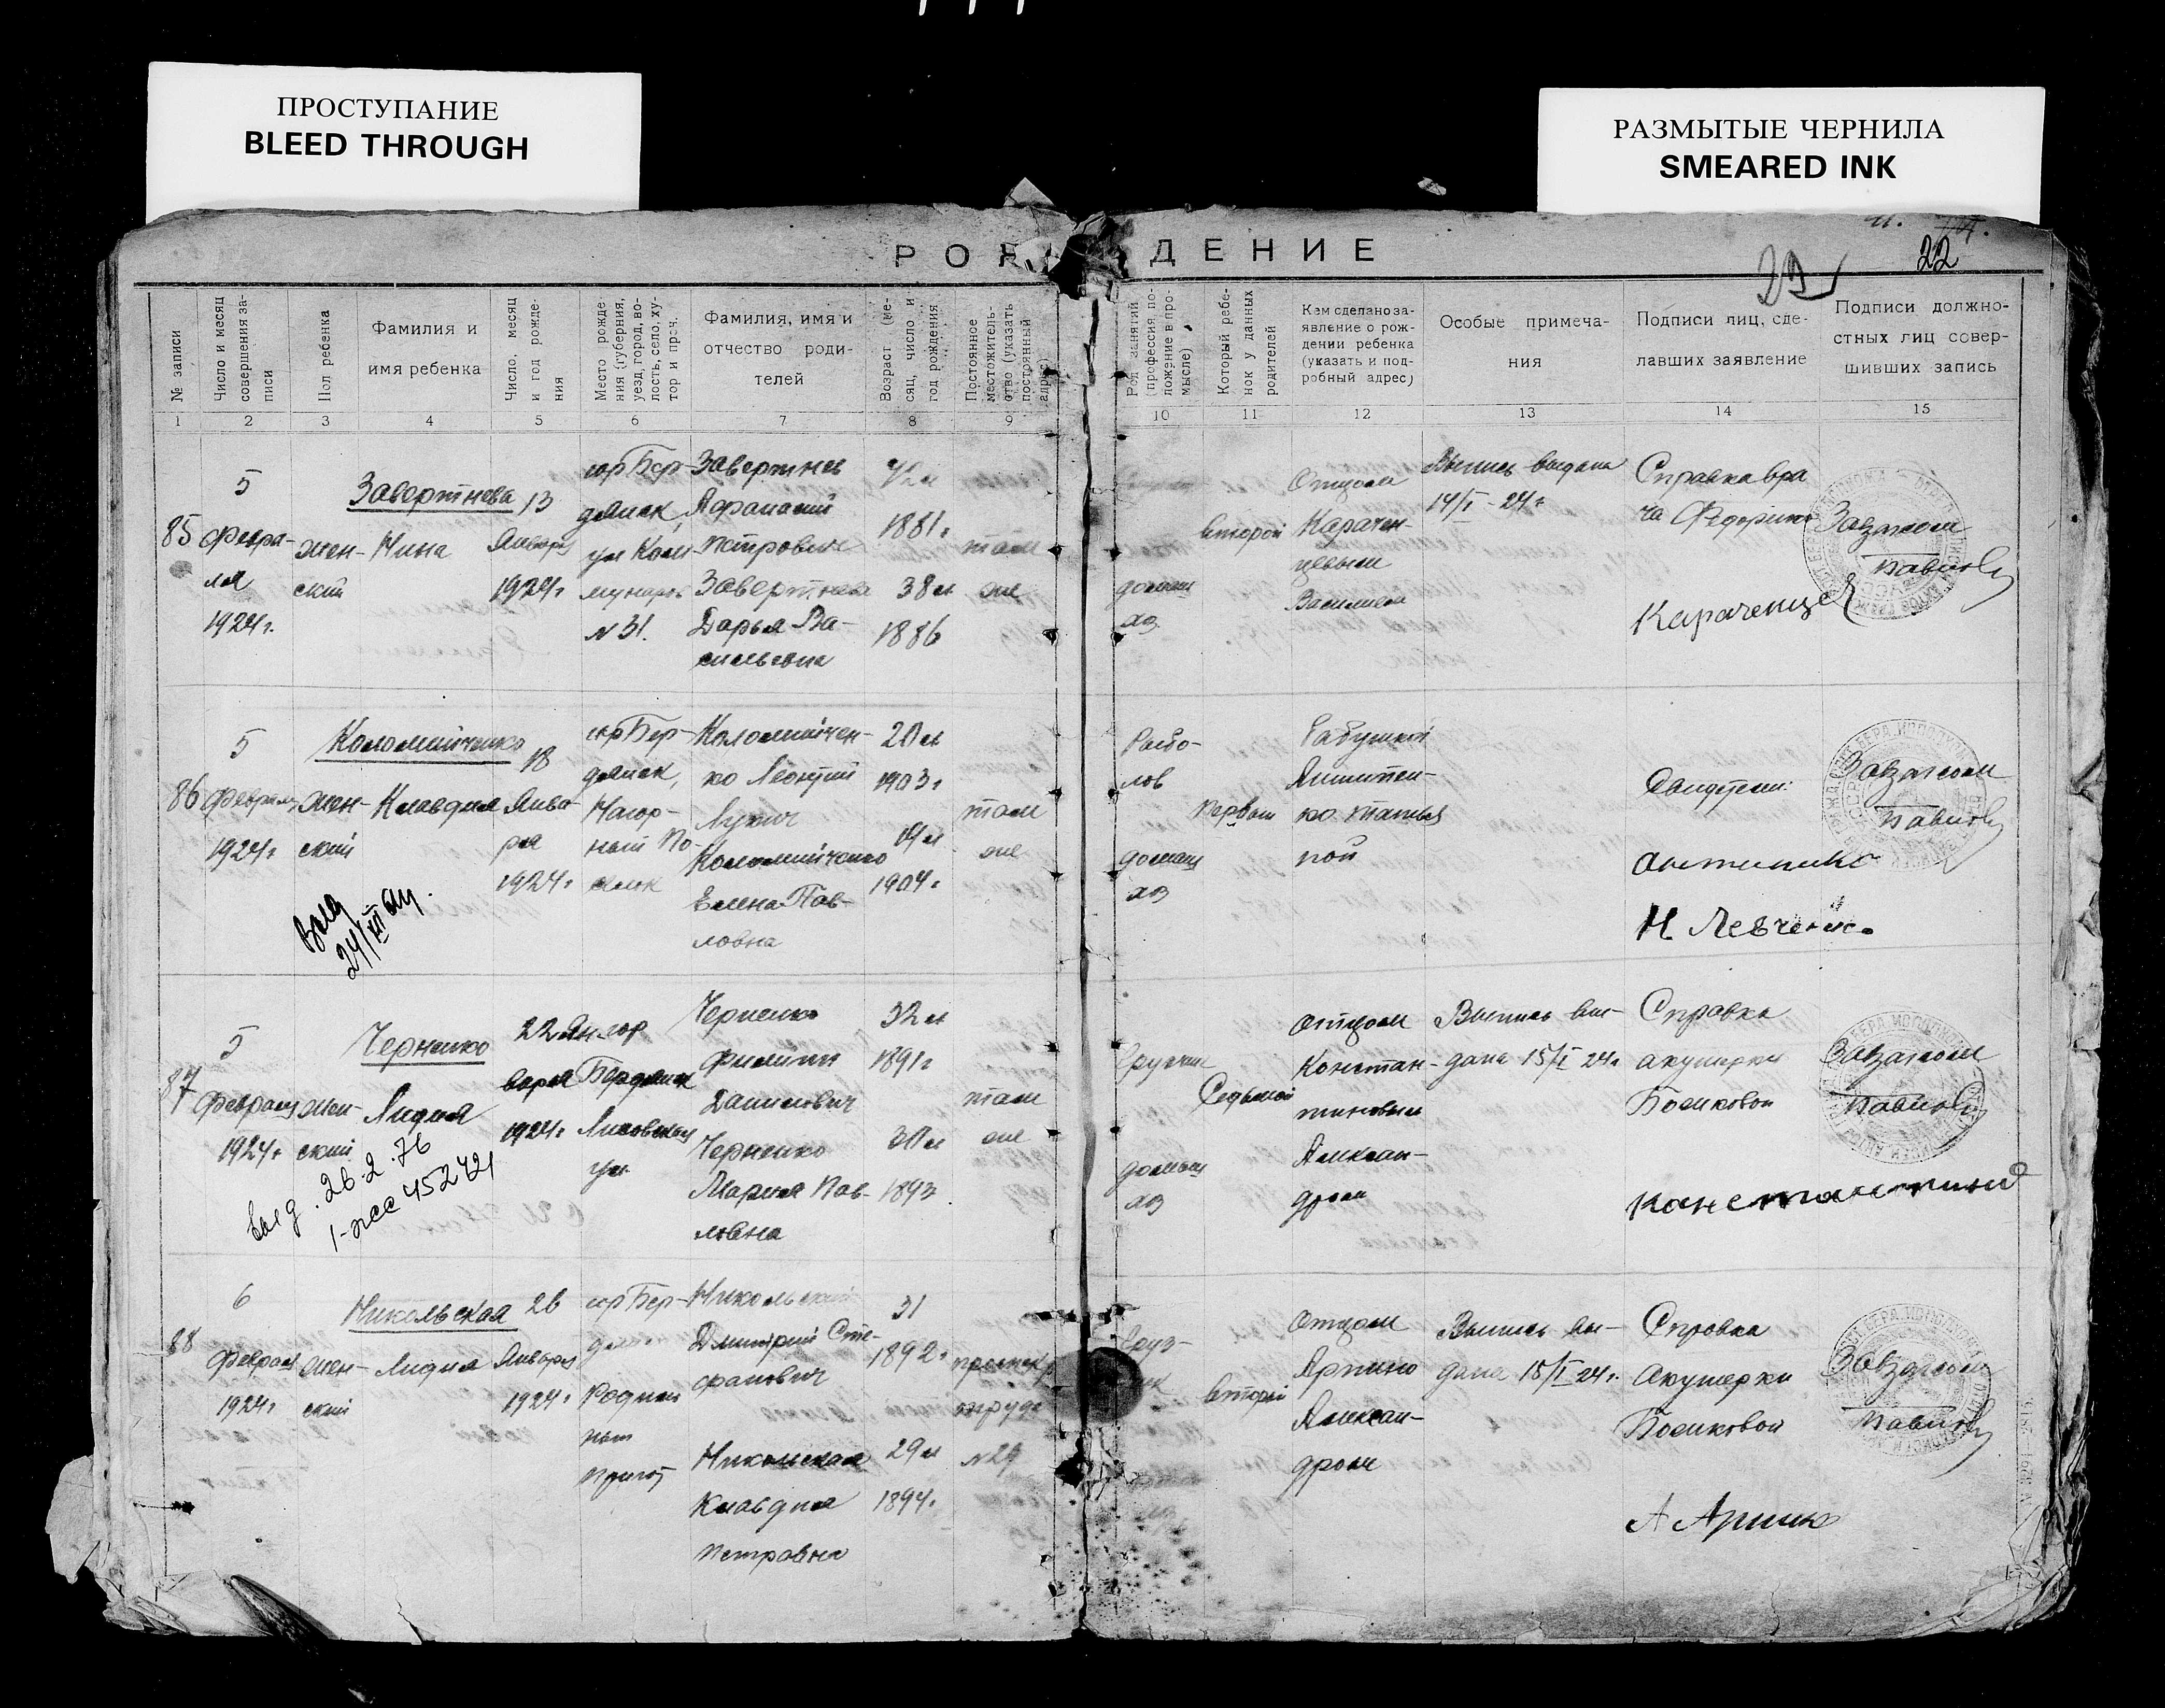 ПРОСТУПАНИЕ
BLEED THROUGH
РАЗМЫТЫЕ ЧЕРНИЛА
SMEARED INK
РОЖДЕНИЕ
22
№ записи
Число и месяц совершения записи
Пол ребенка
Фамилия и
имя ребенка
Число, месяц и год рождения
Место рожде
ния (губерния,
уезд, город, во-
лость, село, ху-
тор и проч.
Фамилия, имя и
отчество роди-
телей
Возраст (ме-
сяц, число и
год рождения
Постоянное
местожитель-
ство (указать
постоянный
адрес)
Род занятий
(профессия по-
ложение в про-
мысле)
Который ребе-
нок у данных
родителей
Кем сделано за-
явление о рож-
дении ребенка
(указать и под-
робный адрес)
Особые примеча-
ния
Подписи лиц, сде-
лавших заявление
Подписи должно-
стных лиц совер-
шивших запись
1 2 3 4 5 6 7 8 9 10 11 12 13 14 15
85
5
Февра-
ля
1924г.
жен-
ский
Завертнева
Нина
13
Января
1924г.
гор Бер-
дянск,
ул Ком
мунаров
№ 31.
Завертнев
Афанасий
Петрович
Завертнева
Дарья Ва-
сильевна
1881г
38 л
1886
там
же
домаш
хоз
второй
Отцом
Карачен-
цевым
Выпись выдана
14/I - 24г
Справка вра
ча
Завзагсом
Караченцев
86
5
Февраля
1924г
жен-
ский
Коломийченко
Клавдия
18
Янва-
ря
1924г
гор Бер-
дянск,
Нагор-
ный По-
селок
Коломийчен-
ко Леонтий
Лукич
Коломийченко
Елена Пав-
ловна
20 л
1903г
19 л
1904г
там
же
Рыбо-
лов
домаш
хоз
первый
Бабушкой
Завзагсом
Н Левченко
Выд
24/III
87
5
Февраля
1924г
жен-
ский
Черненко
Лидия
22 Ян-
варя
1924г
гор
Бердянск
ул
Черненко
Филипп
Данилович
Черненко
Мария Пав-
ловна
32 л
1891г
30 л
1893
там
же
Грузчик
домаш
хоз
Седьмой
Отцом
Констан-
тиновым
Алексан-
дром
Выпись вы-
дана 15/I 24г.
Справка
акушерки
Босиковой
Завзагсом
Константинов
Выд. 26.2.76
88
6
Февраля
1924г
жен-
ский
Никольская
Лидия
26
Января
1924г
гор Бер-
Родиль
ный
приют
Никольский
Дмитрий Сте-
фанович
Никольская
Клавдия
Петровна
31
1892г
29 л
1894г
№ 29
Груз-
чик
второй
Отцом
Алексан-
дром
Выпись вы-
дана 15/I 24г.
Справка
Акушерки
Босиковой
Завзагсом